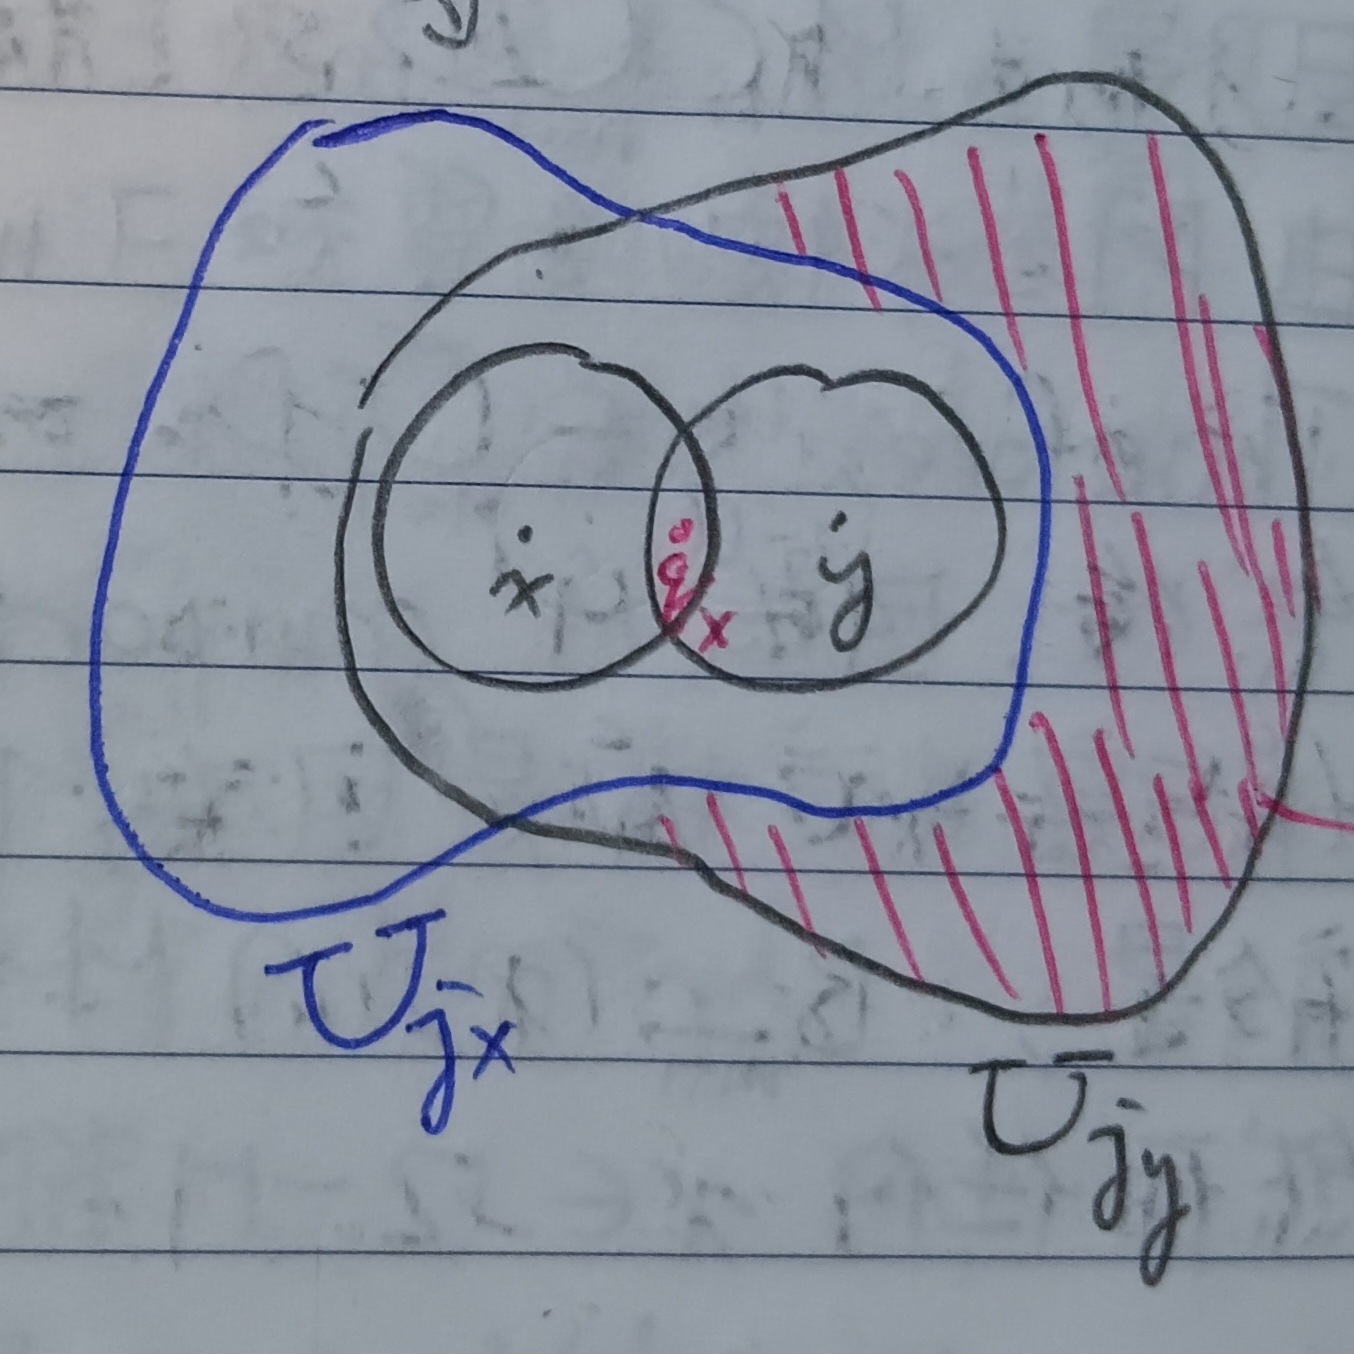 x
y
q_x
U_jx
U_jy